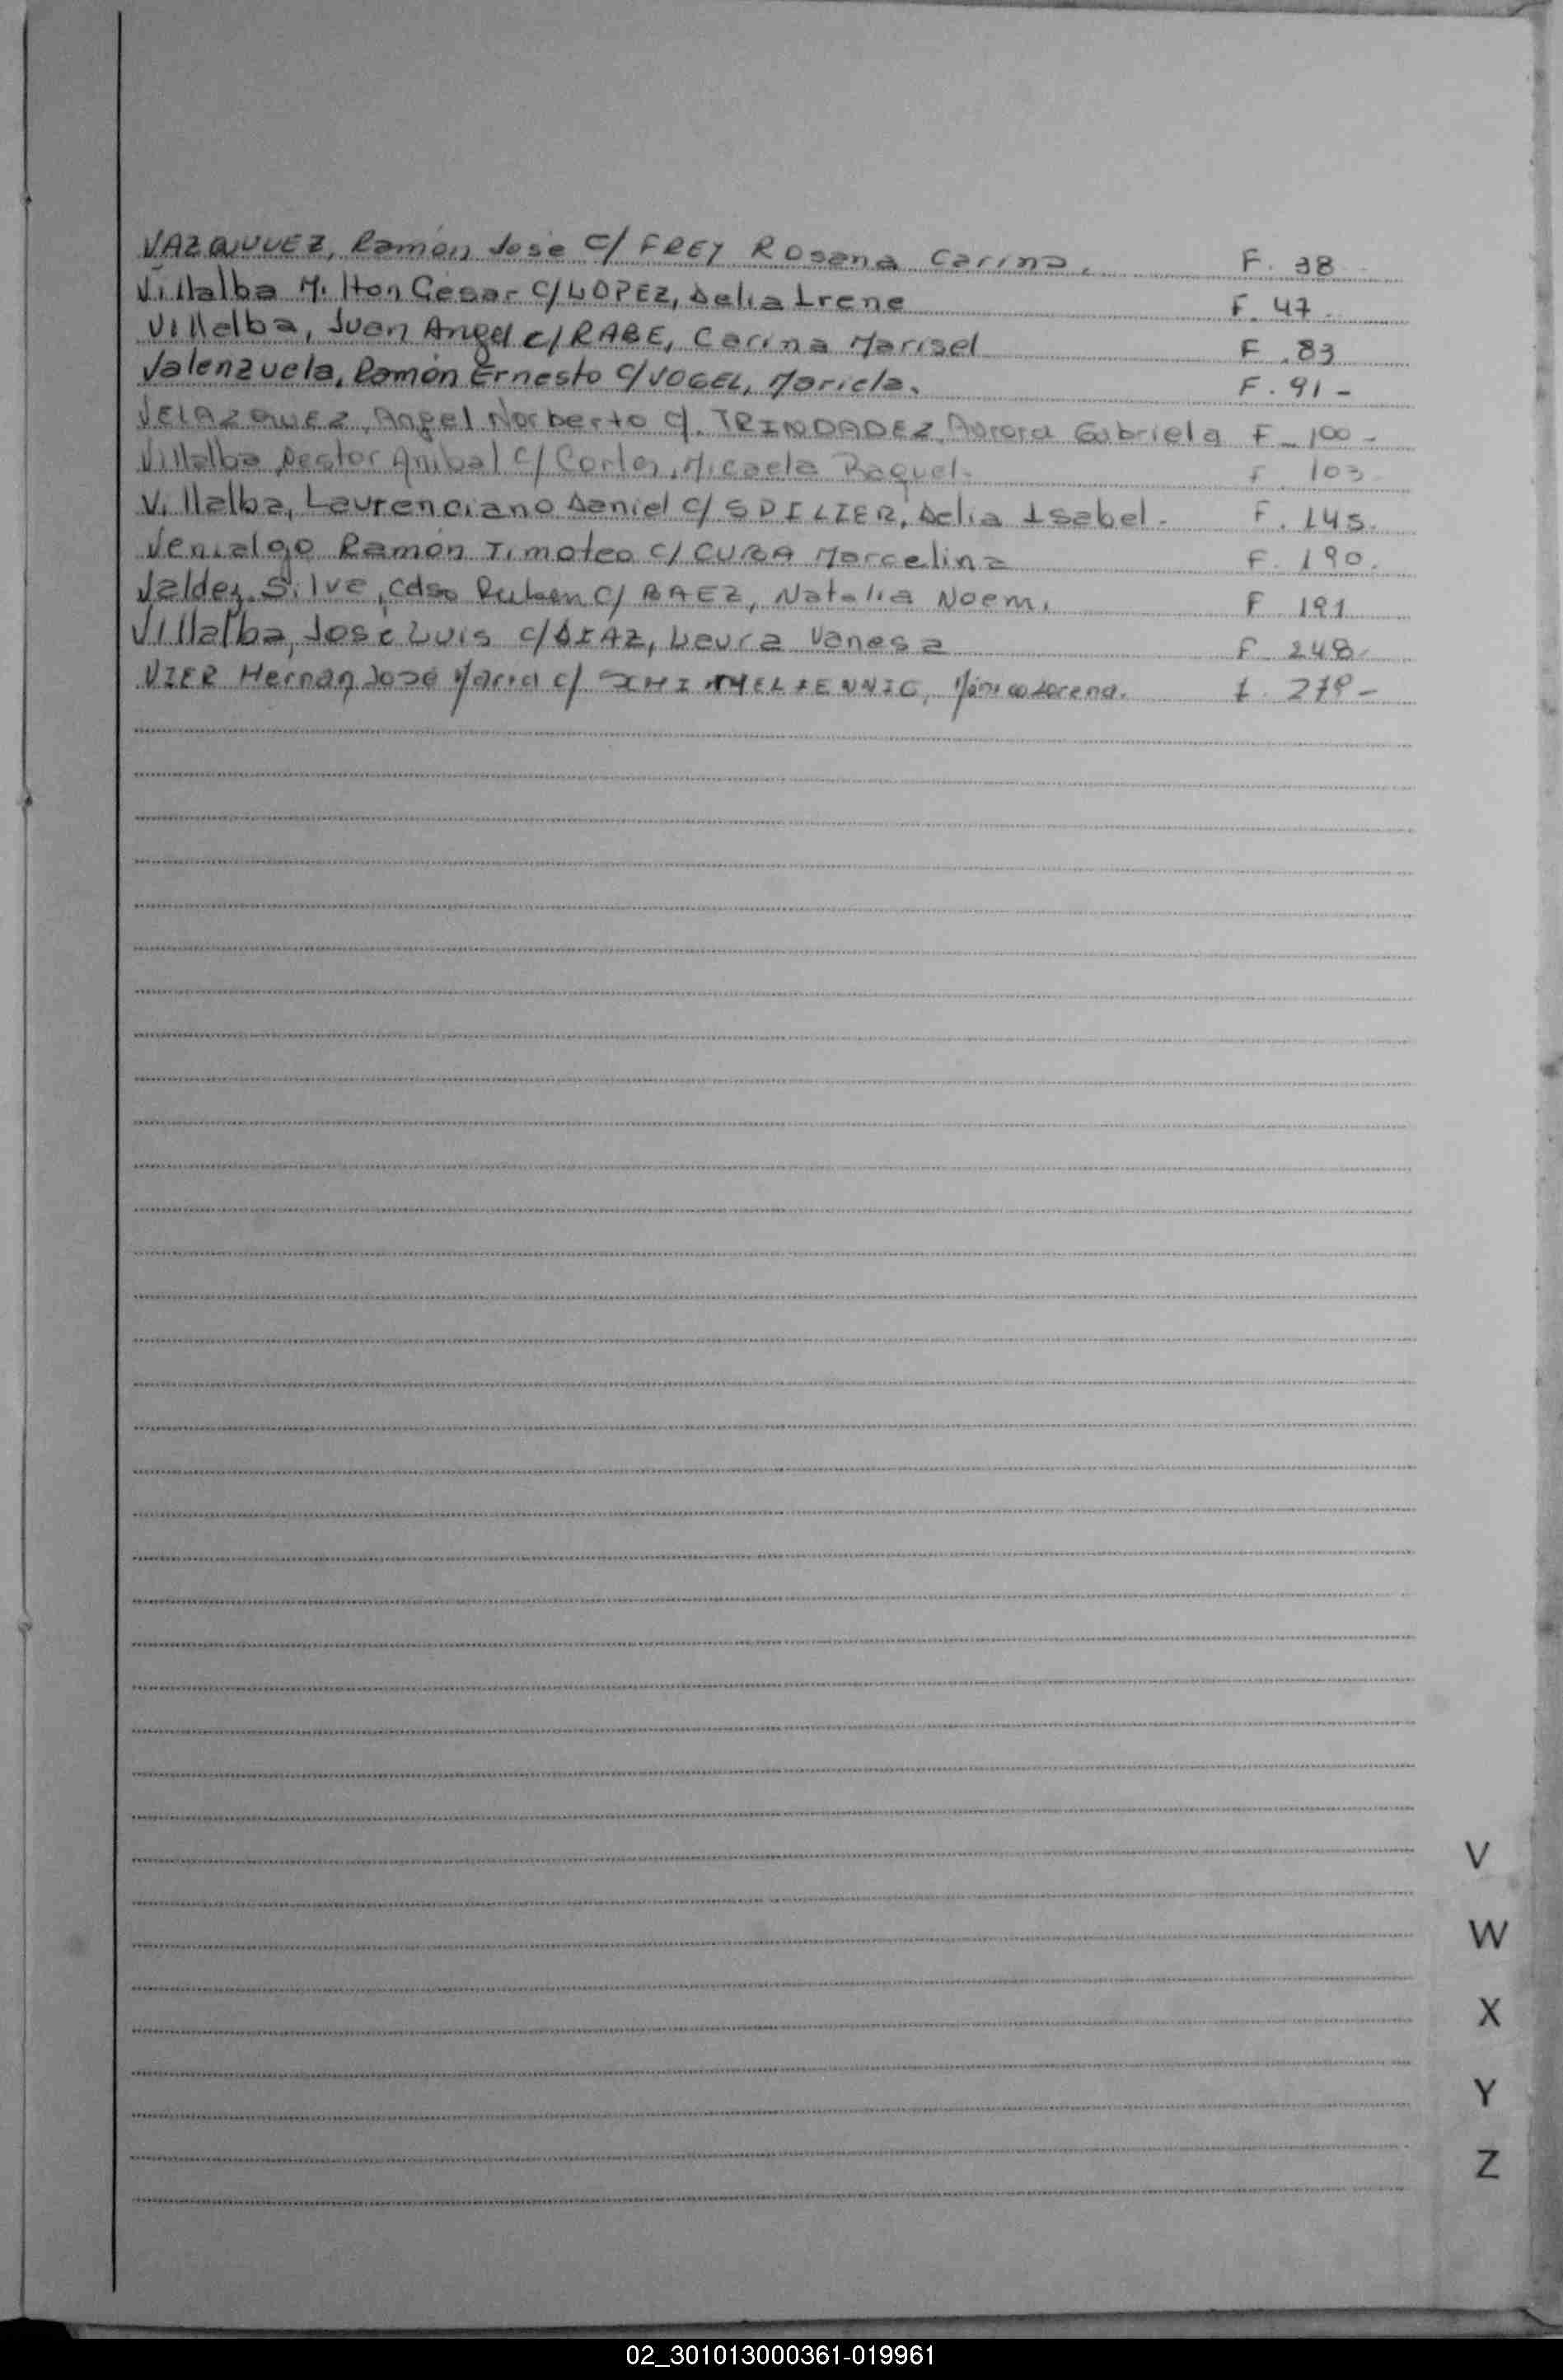 VAZQUUEZ, Ramón José C/ FREY Rosana Carina. F. 38
Villalba Milton César C/LOPEZ, Delia Irene F. 47.
Villalba, Juan Angel c/RABE, Carina Marisel F. 83
Valenzuela, Ramón Ernesto C/VOGEL, Mariela. F. 91-
VELAZQUEZ, Angel Norberto C/. TRINDADEZ, Aurora Gabriela F. 100-
Villalba Anibal C/ Micaela Raquel. F 103
Villalba, Laurenciano Daniel c/ SPILIER, Delia Isabel. F. 145.
Venialgo Ramón Timoteo C/ CUBA Marcelina F. 190.
Valdez Silva, Celso Ruben C/ BAEZ, Natalia Noemi F 191
Villalba, José Luis c/DIAZ, Laura Vanesa F 248.
VIER Hernán José María c/ Lorena. F. 279-
V
W
X
Y
Z
02_301013000361-019961